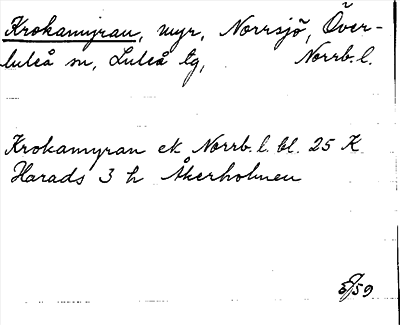 Krokamyran, myr, Norrsjö, Över-
luleå sn, Luleå tg, Norrb. l.
Krokamyran ek Norrb. l. bl. 25 K
Harads 3 h Åkerholmen
5/59